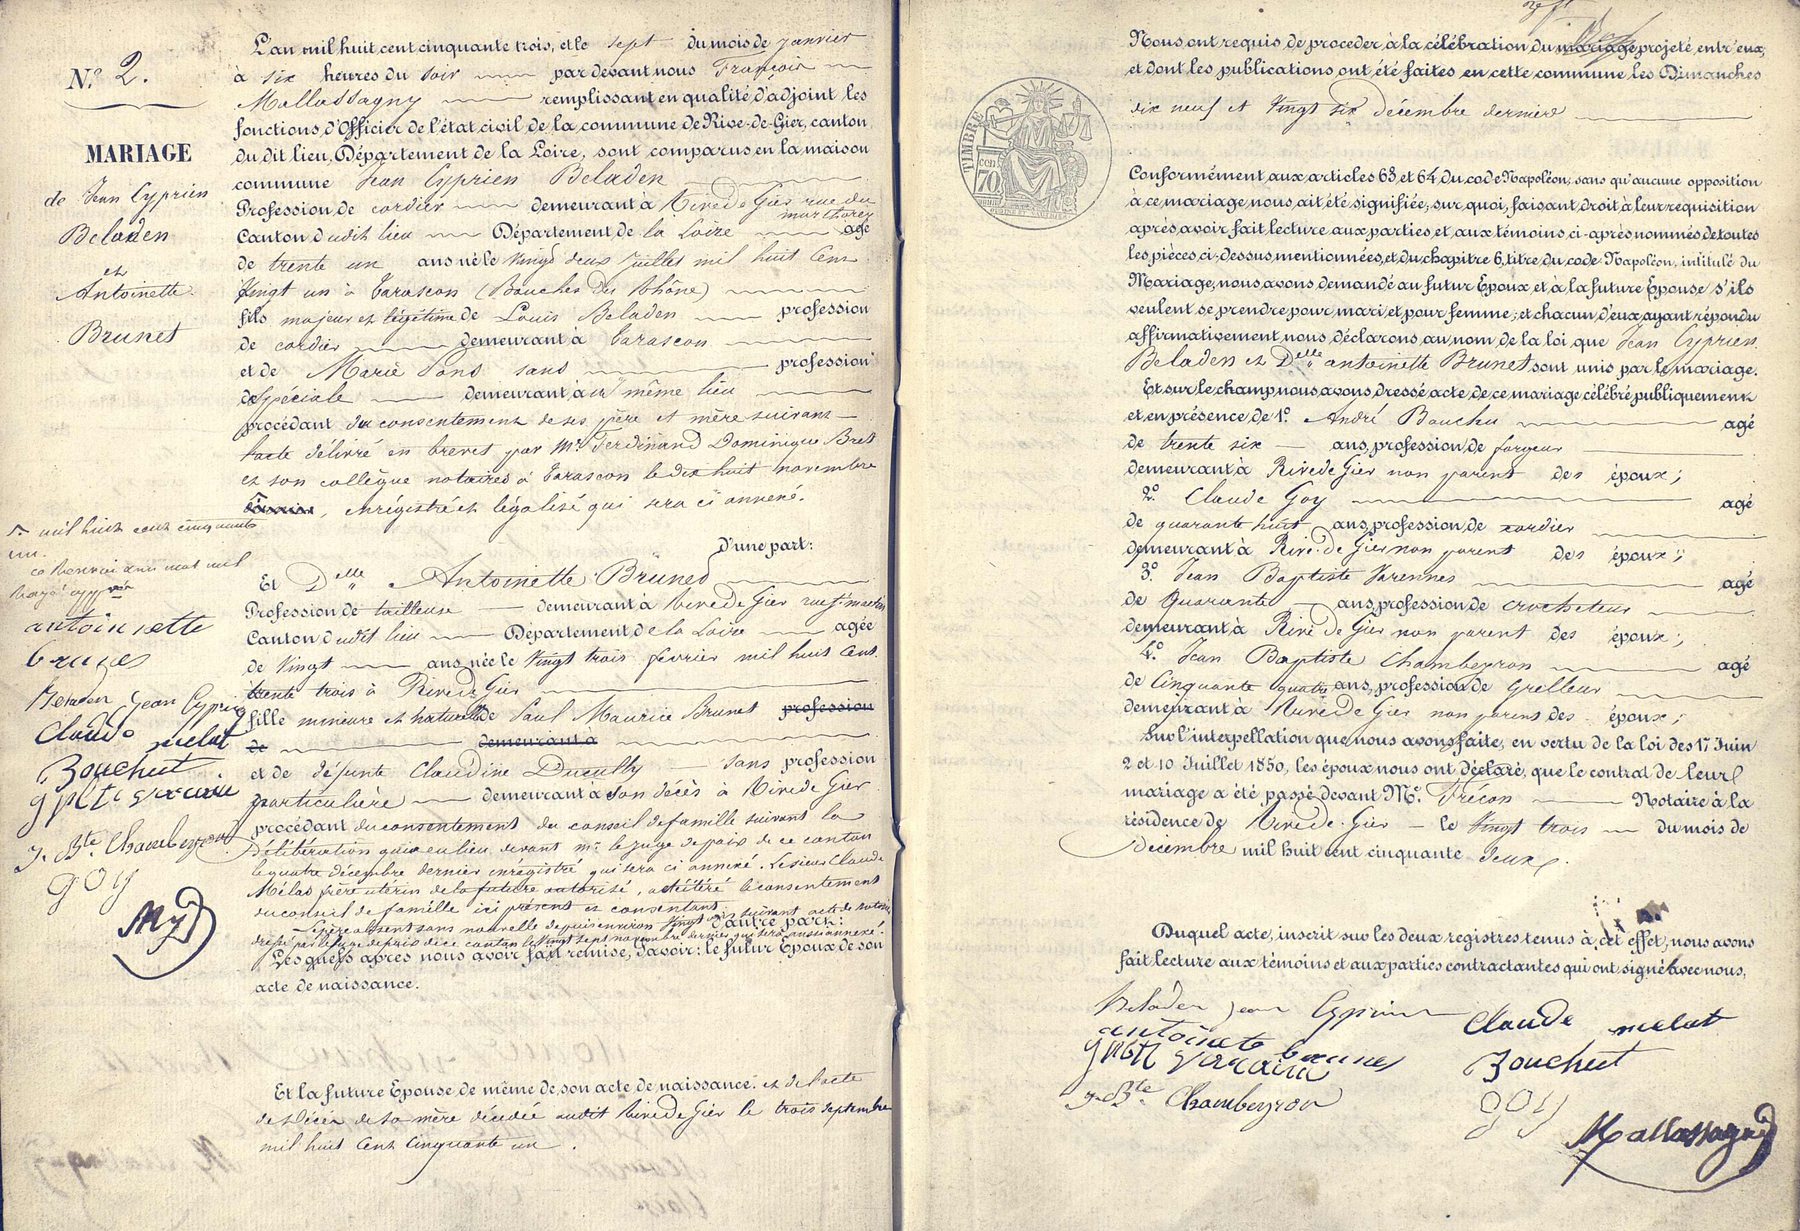 N.º 2.
MARIAGE
de Jean Cyprien
Beladen
et
Antoinette
Brunet
L'an mil huit cent cinquante trois, et le sept du mois de janvier
à six heures du soir par devant nous François
Mallassagny remplissant en qualité d'adjoint les
fonctions d'Officier de l'état civil de la commune de Rive-de-Gier, canton
du dit lieu, Département de la Loire, sont comparus en la maison
commune Jean Cyprien Beladen
Profession de cordier demeurant à Rive de Gier rue du
Canton dudit lieu Département de la Loire agé
de trente un ans né le Vingt deux juillet mil huit Cent
Vingt un à Tarascon (Bouches du Rhône)
fils majeur et légitime de Louis Beladen profession
de cordier demeurant à Tarascon
et de Marie Pons sans profession
Spéciale demeurant à u même lieu
procédant du consentement de ses père et mère suivant
l'acte délivré en brevet par Mr. Ferdinand Dominique Bret
et son collègue notaires à Tarascon le dix huit novembre
enrégistré et légalisé qui sera ci annexé.
mil huit cent cinquante
un.
D'une part:
Et Delle Antoinette Brunet
Profession de tailleuse demeurant à Rive de Gier rue St. martin
Canton dudit lieu Département de la Loire agée
de Vingt ans née le Vingt trois fevrier mil huit Cent
trente trois à Rive de Gier
fille mineure et naturelle de Paul Maurice Brunet profession
de demeurant à
et de défunte Claudine Ducully sans profession
particulière demeurant à son décès à Rive de Gier
procédant du consentement du conseil de famille suivant la
délibération qui a eu lieu devant Mr le juge de paix de ce canton
le quatre décembre dernier enrégistré qui sera ci annexé. Le sieur Claude
Mélas frère utérin de la future autorisé, a réitéré le consentement
du conseil de famille ici présent et consentant.
Le père absent sans nouvelle depuis environ Vingt ans suivant acte de
D'autre part:
dressé par le juge de paix de ce canton le Vingt sept novembre dernier qui sera aussi annexé.
Lesquels après nous avoir fait remise, savoir: le futur Epoux de son
acte de naissance.
Et la future Epouse de même de son acte de naissance. et de l'acte
de décès de sa mère décédée audit Rive de Gier le trois septembre
mil huit Cent Cinquante un.
antoinette
brunet
Beladen Jean Cyprien
Claude melat
Bouchut
J. Bte. Chambeyron
goy
My
Nous ont requis de proceder à la célébration du mariage projeté entr'eux,
et dont les publications ont été faites en cette commune les Dimanches
dix neuf et Vingt six décembre dernier
TIMBRE
70
Conformément aux articles 63 et 64 du code Napoléon, sans qu'aucune opposition
à ce mariage nous ait été signifiée, sur quoi, faisant droit à leur requisition
après avoir fait lecture aux parties et aux témoins ci-après nommés de toutes
les pièces ci-dessus mentionnées, et du chapitre 6, titre du code Napoléon, intitulé du
Mariage, nous avons demandé au futur Epoux et à la future Epouse s'ils
veulent se prendre pour mari et pour femme; et chacun d'eux ayant répondu
affirmativement nous déclarons au nom de la loi que Jean Cyprien
Beladen et Delle antoinette Brunet sont unis par le mariage.
Et sur le champ nous avons dressé acte de ce mariage célébré publiquement
et en présence de 1º. André Bouchu agé
de trente six ans, profession de forgeur
demeurant à Rive de Gier non parent des époux;
2º. Claude Goy agé
de quarante huit ans, profession de cordier
demeurant à Rive de Gier non parent des époux;
3º. Jean Baptiste Varennes agé
de Quarante ans, profession de crocheteur
demeurant à Rive de Gier non parent des époux;
4º. Jean Baptiste Chambeyron agé
de Cinquante quatre ans, profession de Grelleur
demeurant à Rive de Gier non parent des époux;
Sur l'interpellation que nous avons faite, en vertu de la loi des 17 Juin
2 et 10 Juillet 1850, les époux nous ont déclaré, que le contrat de leur
mariage a été passé devant Me. Frécon Notaire à la
résidence de Rive de Gier le Vingt trois du mois de
Décembre mil huit cent cinquante deux.
Duquel acte, inscrit sur les deux registres tenus à cet effet, nous avons
fait lecture aux témoins et aux parties contractantes qui ont signé avec nous,
Beladen Jean Cyprien Claude melat
antoinete brunet
Bouchut
J. Bte Chambeyron goy
Mallassagny